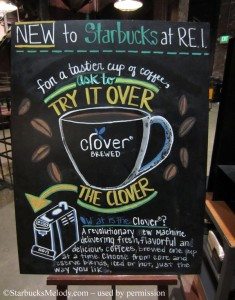 NEW to Starbucks at R.E.I.
for a tastier cup of coffee,
ask to
TRY IT OVER
clover®
BREWED
THE CLOVER
What is the Clover®?
A revolutionary new machine
delivering fresh, flavorful and
delicious coffees, brewed one cup
at a time. Choose from core and
reserve blends, iced or hot, just the
way you like
©StarbucksMelody.com – used by permission